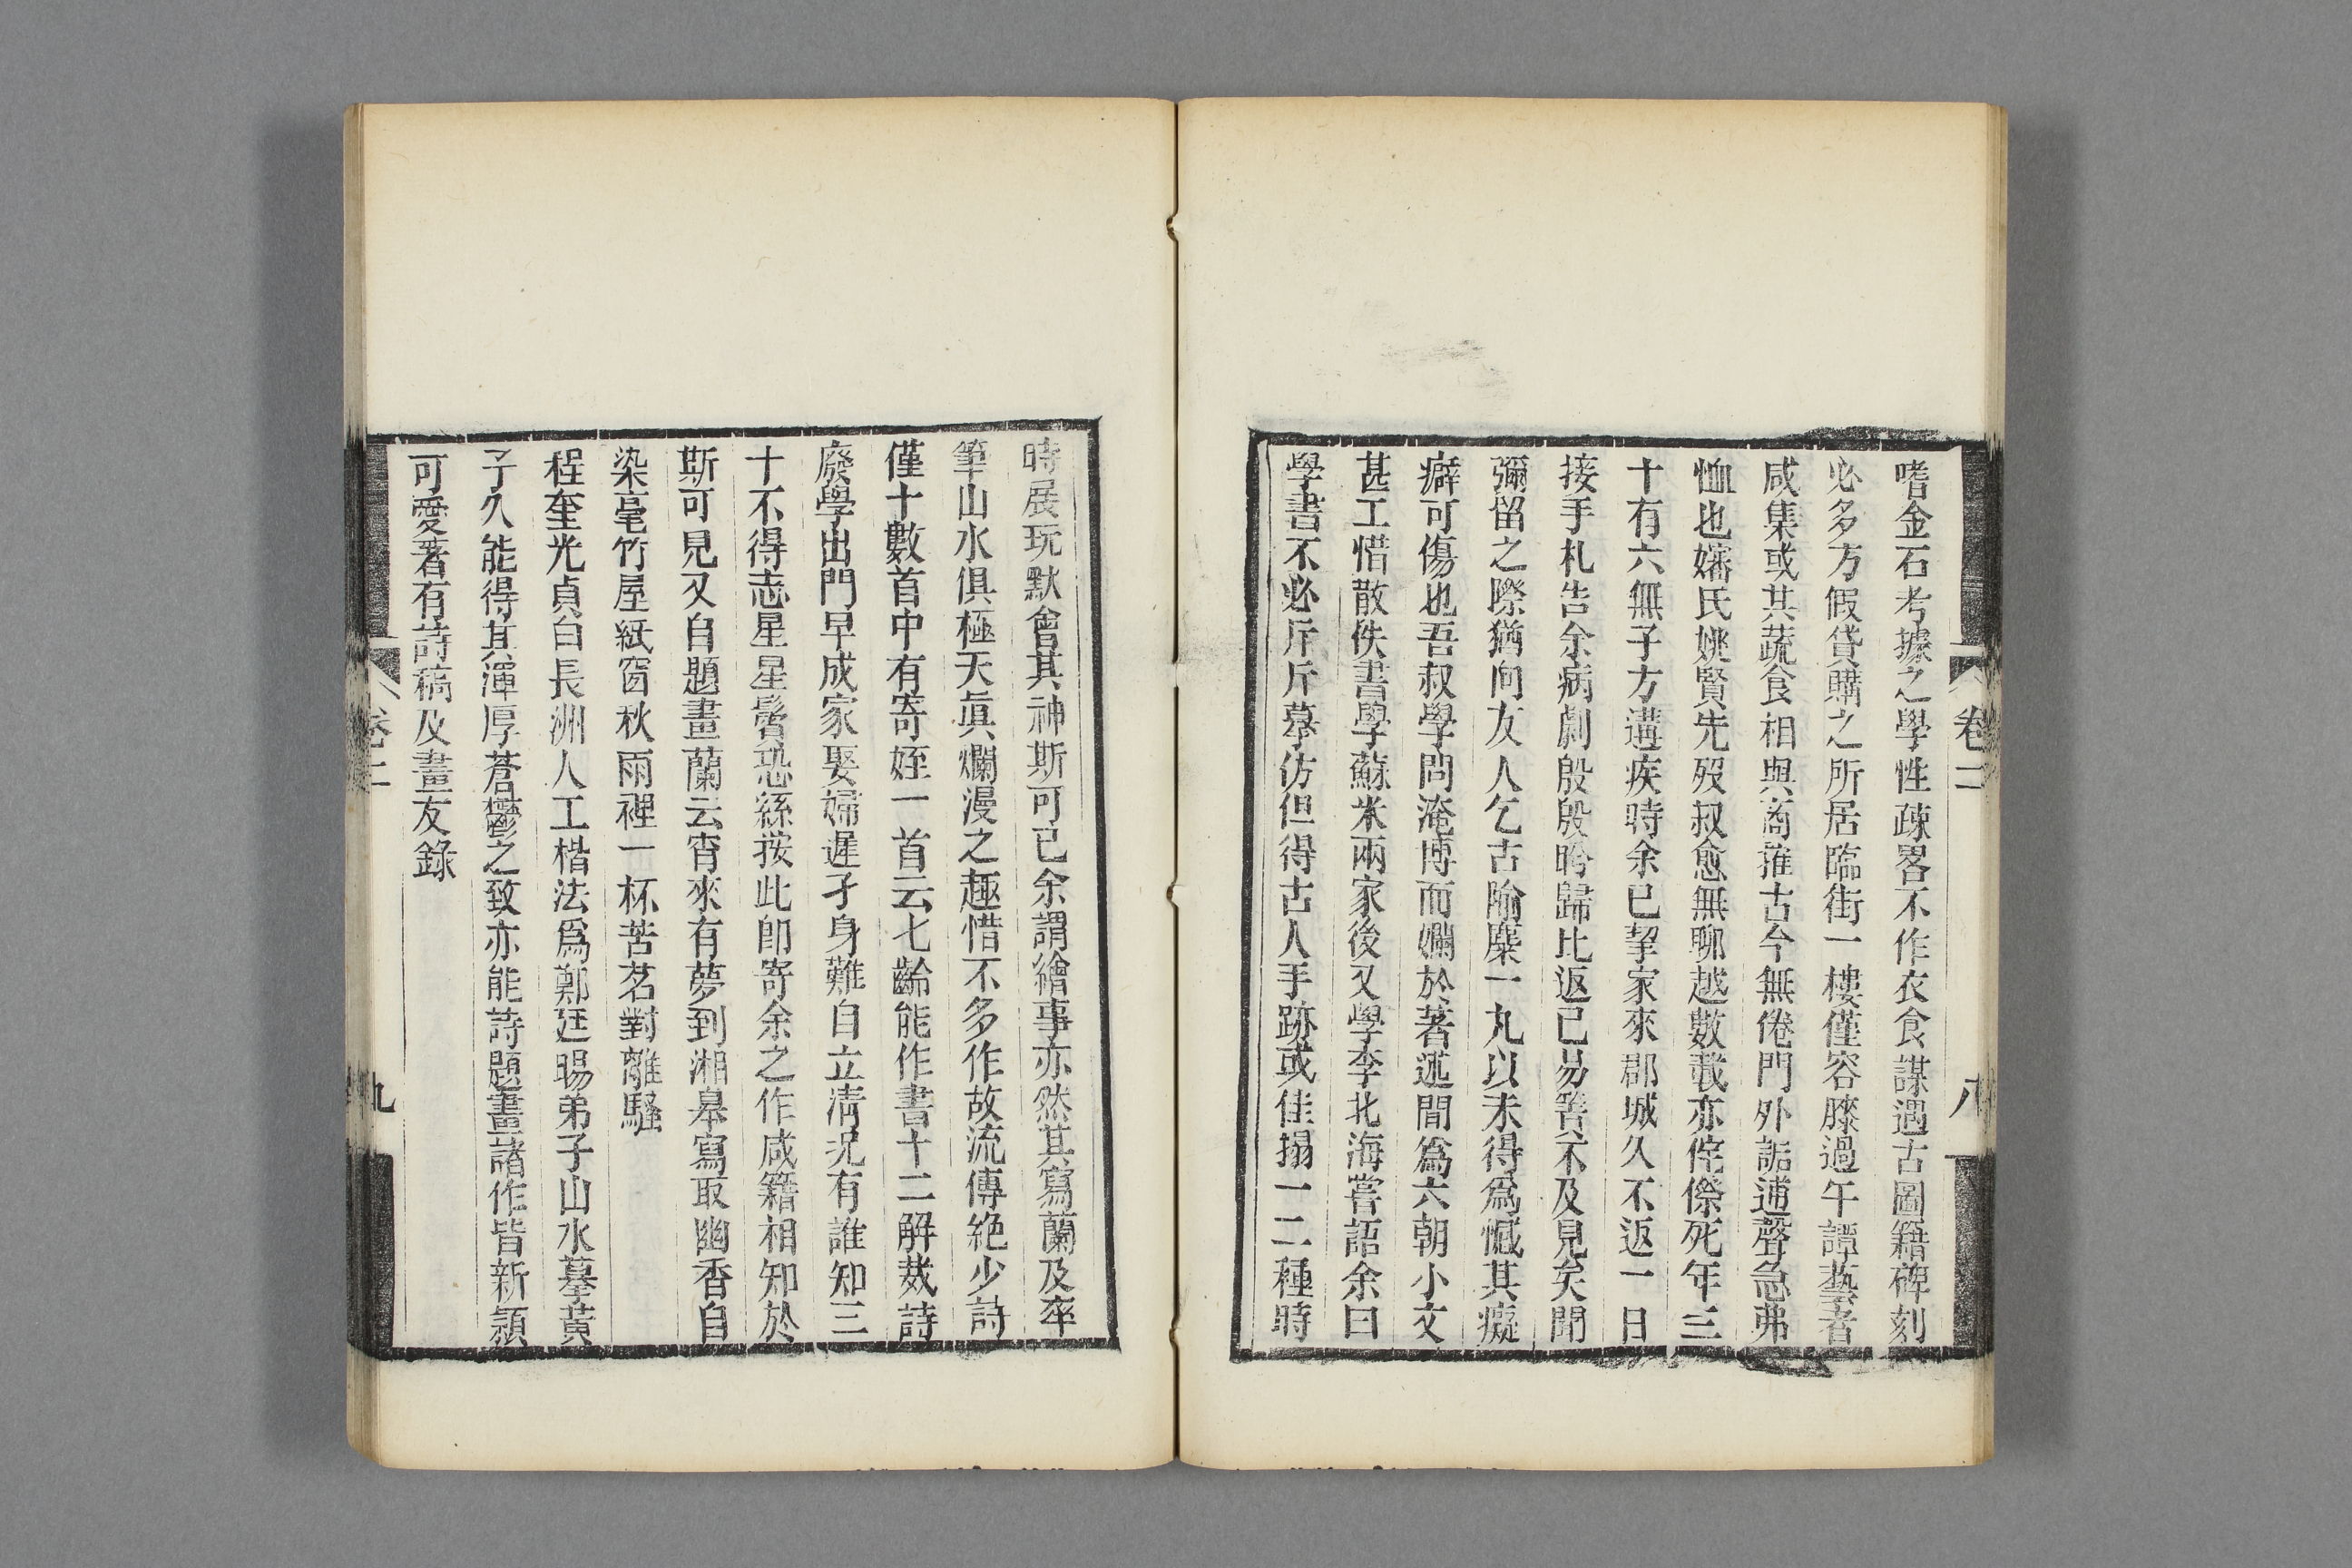 卷二
八
嗜金石考據之學性疎畧不作衣食謀遇古圖籍碑刻
必多方假貸購之所居臨街一樓僅容膝過午譚藝者
咸集或其蔬食相與商搉古今無倦門外詬逋聲急弗
恤也嬸氏姚賢先歿叔愈無聊越數載亦侘傺死年三
十有六無子方遘疾時余已挈家來郡城久不返一日
接手札告余病劇殷殷盻歸比返已易簀不及見矣聞
彌留之際猶向友人乞古隃麋一丸以未得爲憾其癡
癖可傷也吾叔學問淹博而嬾於著述間爲六朝小文
甚工惜散佚書學蘇米兩家後又學李北海嘗詔余曰
學書不必斤斤摹仿但得古人手跡或佳搨一二種時
時展玩默會其神斯可已余謂繪事亦然其寫蘭及率
筆山水俱極天眞爛漫之趣惜不多作故流傳絶少詩
僅十數首中有寄姪一首云七齡能作書十二解裁詩
廢學出門早成家娶婦遲孑身難自立淸況有誰知三
十不得志星星鬢恐絲按此卽寄余之作咸籍相知於
斯可見又自題畫蘭云宵來有夢到湘皋寫取幽香自
染毫竹屋紙窗秋雨裡一杯苦茗對離騷
程奎光貞白長洲人工楷法爲鄭廷暘弟子山水摹黃
子久能得其渾厚蒼鬱之致亦能詩題畫諸作皆新穎
可愛著有詩稿及畫友錄
卷二
九